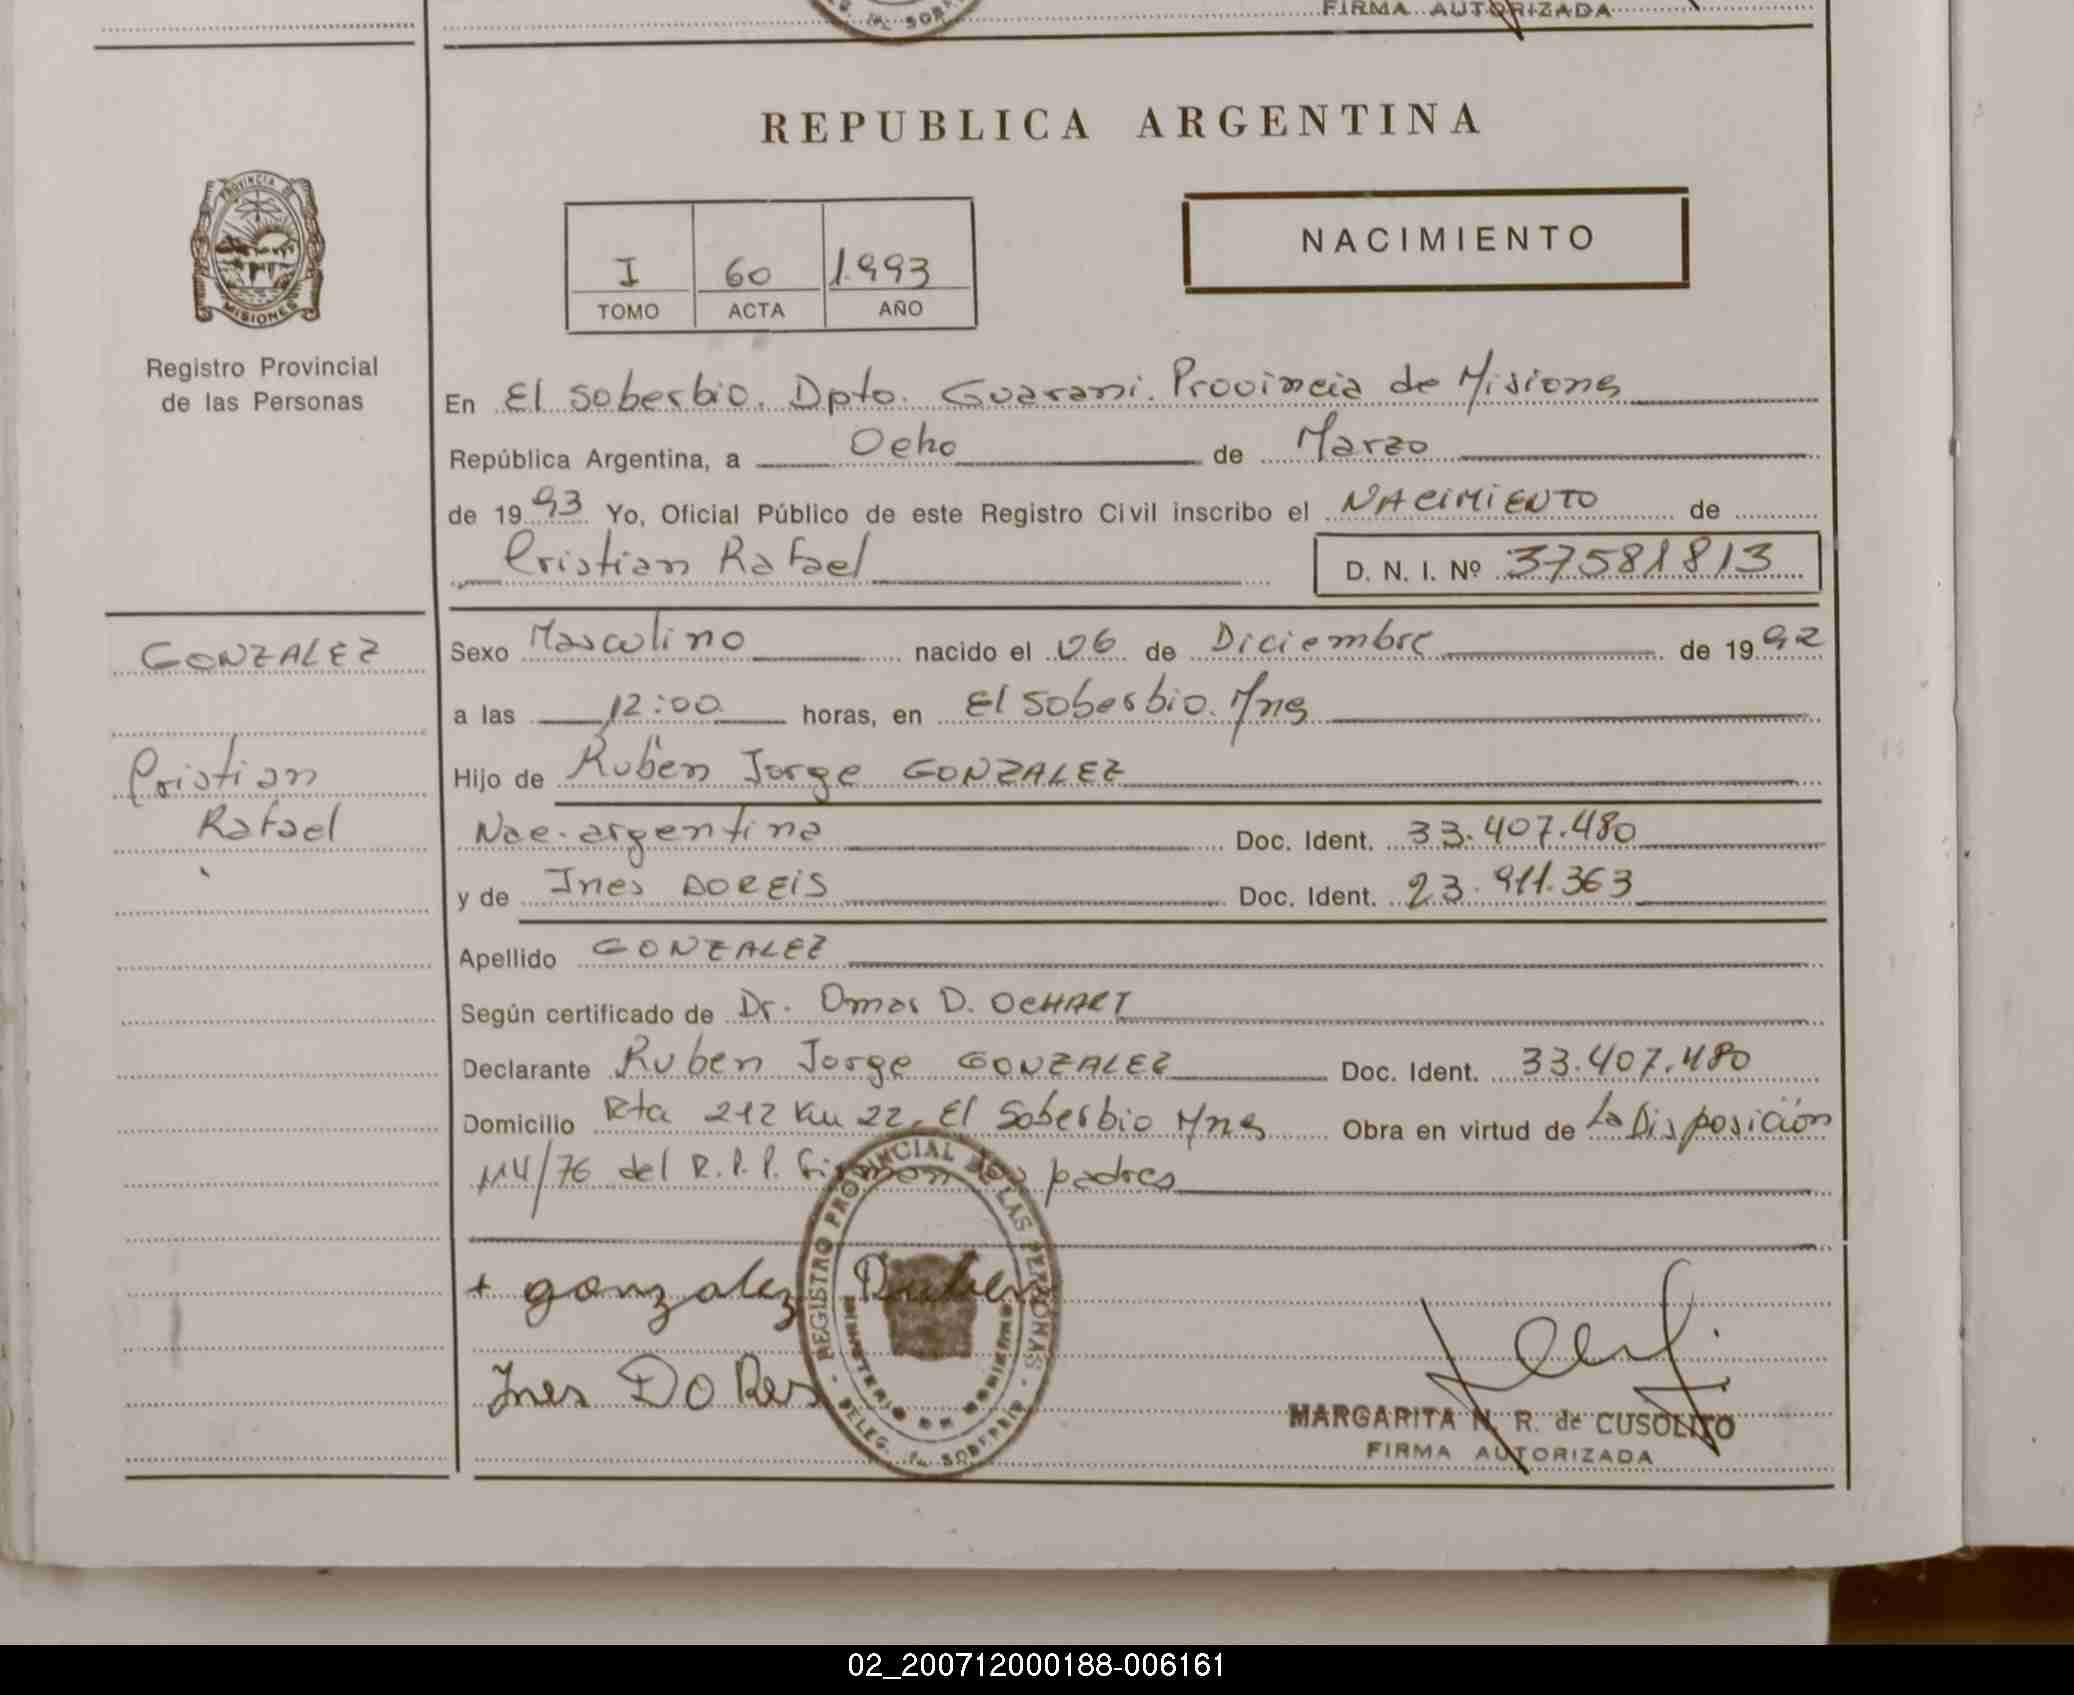 FIRMA AUTORIZADA
REPUBLICA ARGENTINA
PROVINCIA DE
MISIONES
Registro Provincial
de las Personas
I 60 1.993
TOMO ACTA AÑO
NACIMIENTO
En El Soberbio. Dpto. Guarani. Provincia de Misiones
República Argentina, a Ocho de Marzo
de 1993 Yo, Oficial Público de este Registro Civil inscribo el NACIMIENTO de
Cristian Rafael D. N. I. Nº 37581813
GONZALEZ
Cristian
Rafael
Sexo Masculino nacido el 06 de Diciembre de 1992
a las 12:00 horas, en El Soberbio. Mns
Hijo de Ruben Jorge GONZALEZ
Nac. argentina Doc. Ident. 33.407.480
y de Ines DOREIS Doc. Ident. 23.911.363
Apellido GONZALEZ
Según certificado de Dr. Omar D. OCHART
Declarante Ruben Jorge GONZALEZ Doc. Ident. 33.407.480
Domicilio Rta 212 Km 22, El Soberbio Mns Obra en virtud de La Disposición
114/76 del R.P.P. padres
+ gonzalez Ruben
Ines Do Res
REGISTRO PROVINCIAL DE LAS PERSONAS
MINISTERIO DE GOBIERNO
DELEG. EL SOBERBIO
MARGARITA N. R. de CUSOLITO
FIRMA AUTORIZADA
02_200712000188-006161